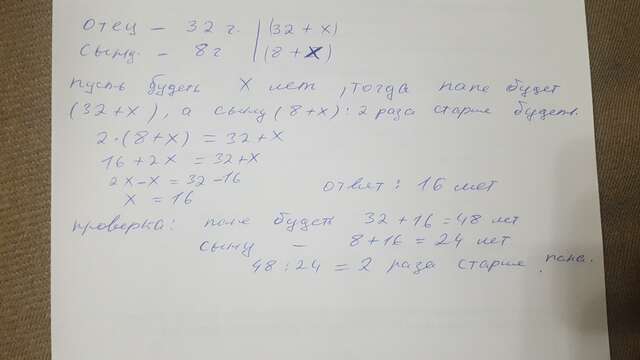 отец - 32 г. | (32 + x)
сыну. - 8 г | (8 + x)
пусть будет x лет, тогда папе будет
(32 + x), а сыну (8 + x): 2 раза старше будет.
2·(8+x) = 32+x
16 + 2x = 32+x
2x-x = 32-16
x = 16
ответ: 16 лет
проверка: папе будет 32 + 16 = 48 лет
сыну - 8 + 16 = 24 лет
48 : 24 = 2 раза старше папа.